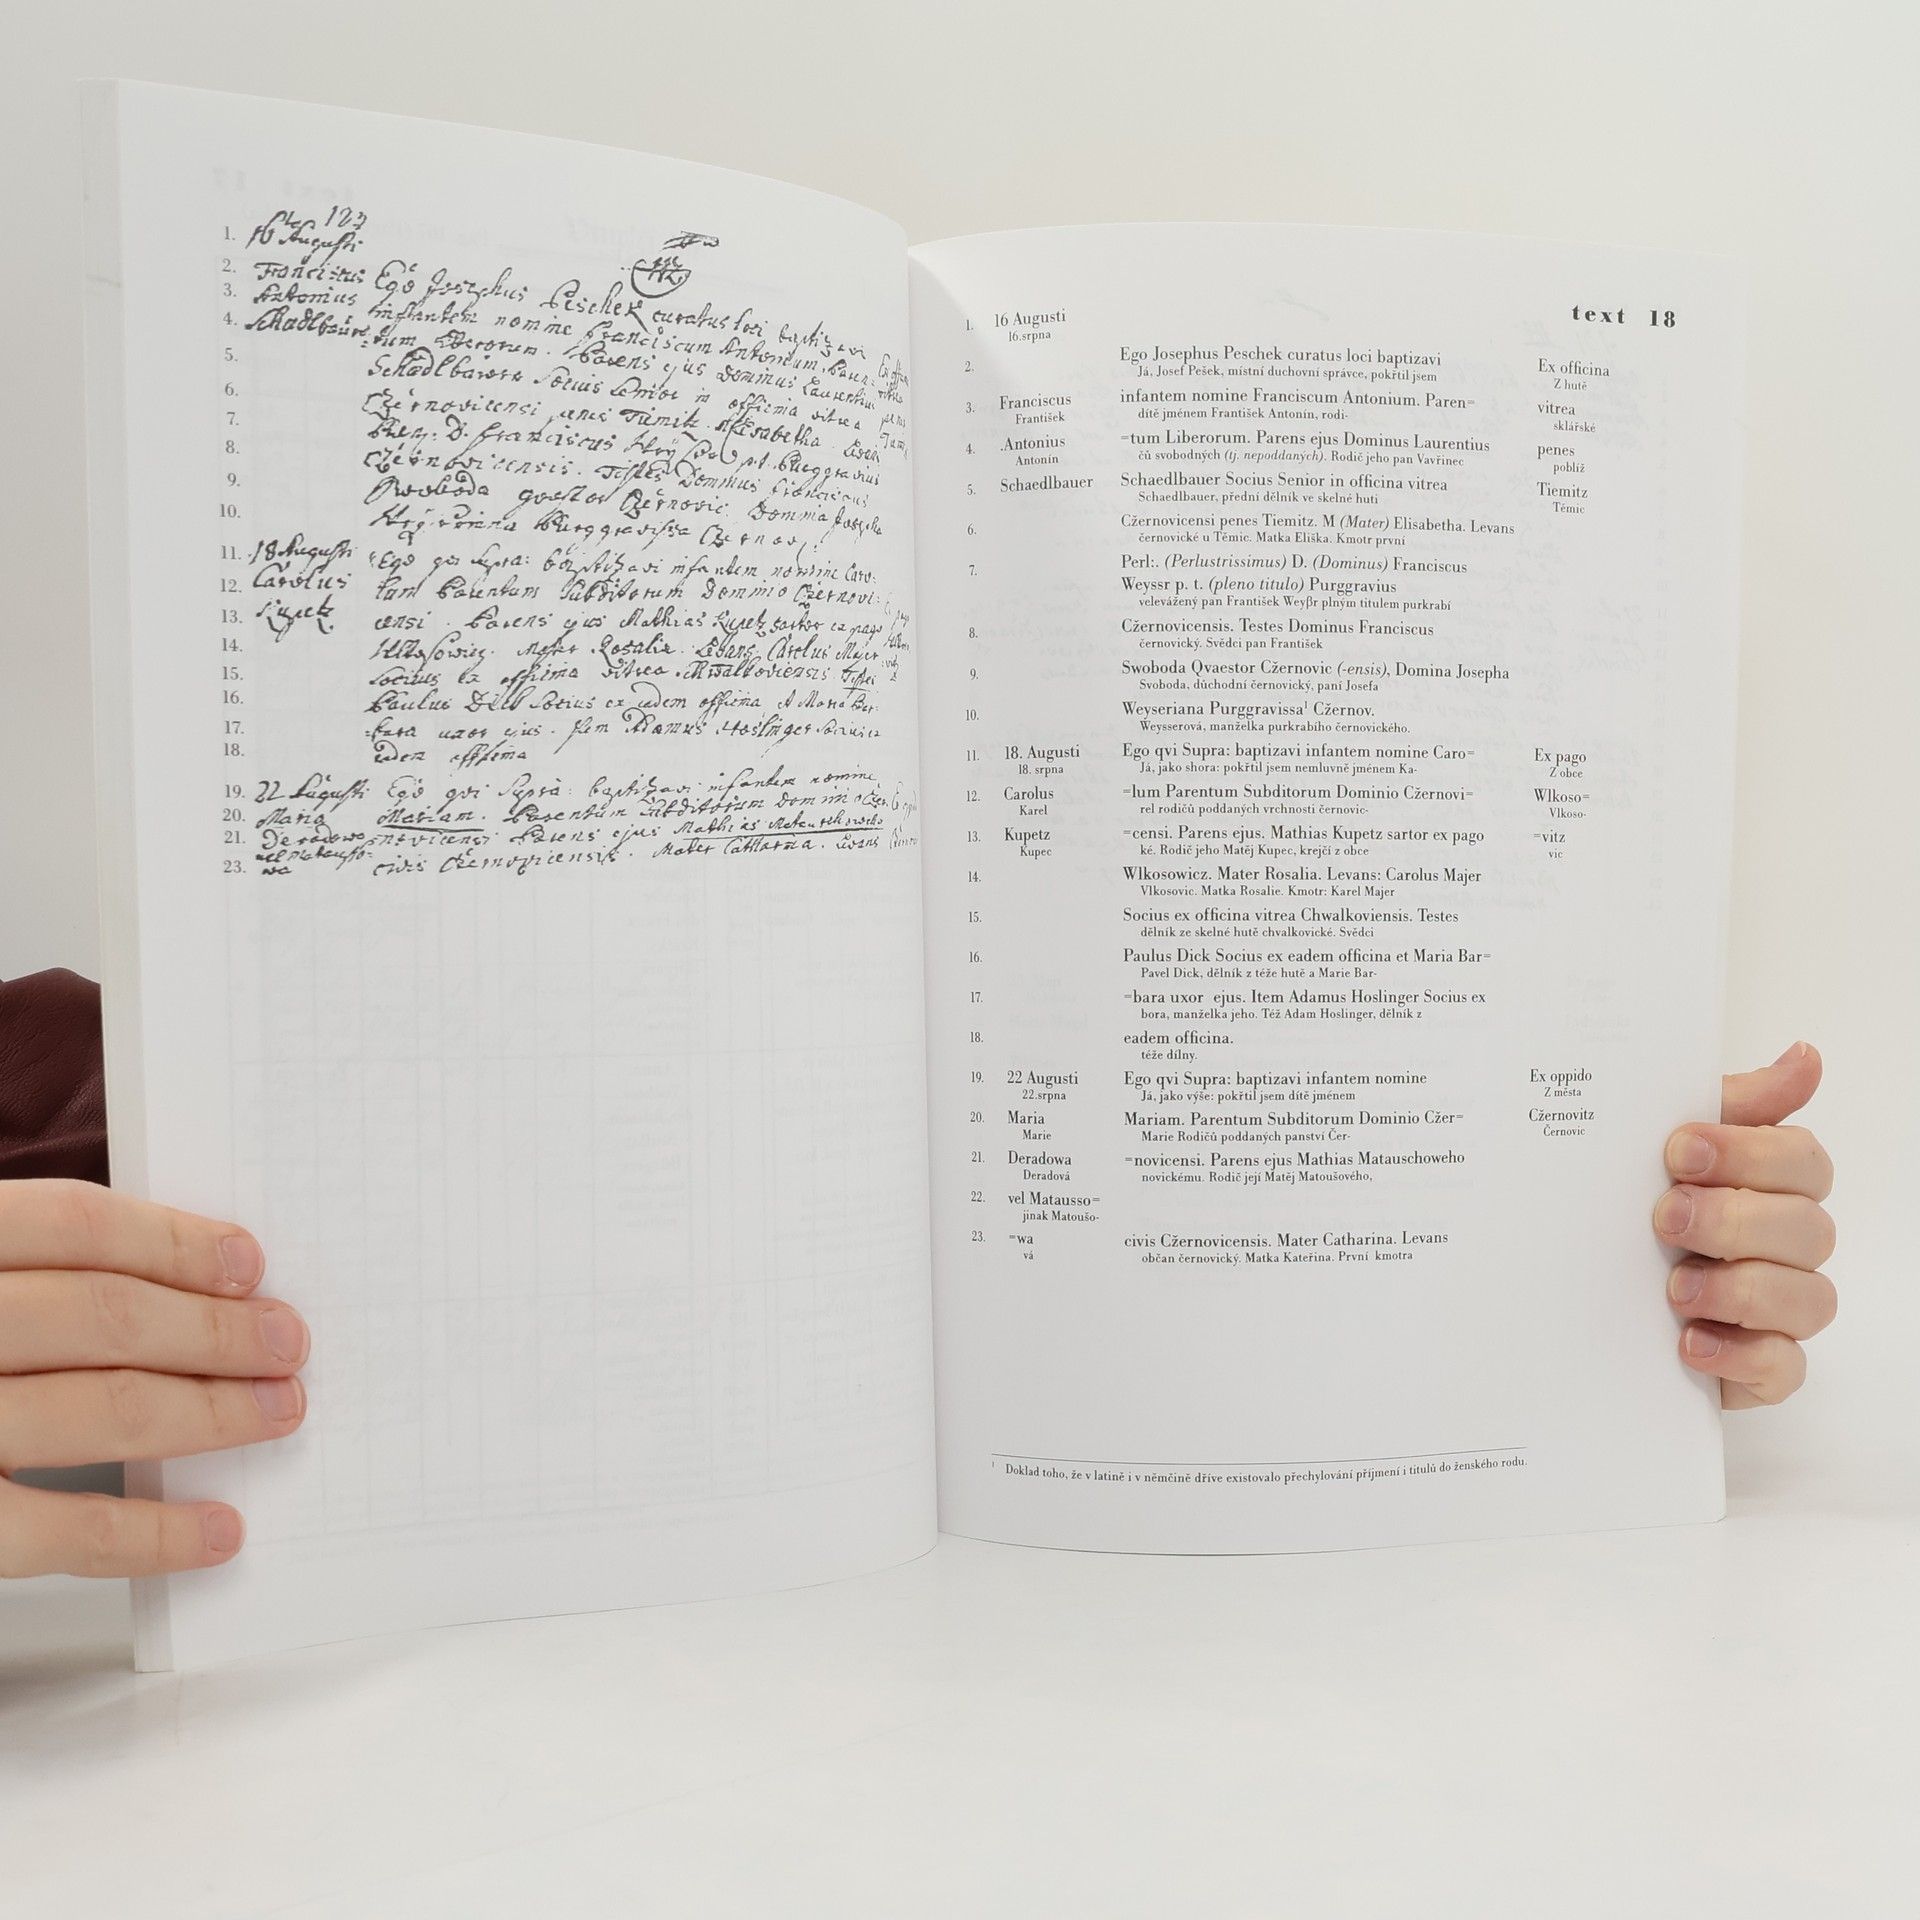 1. 16 Augusti
2. Franciscus Ego Josephus Peschek curatus loci baptizavi
3. Antonius infantem nomine Franciscum Antonium. Paren:
4. Schadlbauer =tum Liberorum. Parens ejus Dominus Laurentius
5. Schadlbawer Socius Senior in officina vitrea
6. Czernovicensi penes Tiemitz. M Elisabetha. Levans
7. D. Franciscus p. t. Purggravius
8. Czernovicensis. Testes Dominus Franciscus
9. Swoboda Qvaestor Czernovic. Domina Josepha
10. Purggravissa Czernov.
11. 18 Augusti Ego qvi Supra: baptizavi infantem nomine Caro=
12. Carolus lum Parentum Subditorum Dominio Czernovi=
13. Kupetz censi. Parens ejus Mathias Kupetz sartor ex pago
14. Wlkosowicz. Mater Rosalia. Levans Carolus Majer
15. Socius ex officina vitrea Chwalkoviensis. Testes
16. Paulus Dick Socius ex eadem officina et Maria Bar=
17. =bara uxor ejus. Item Adamus Hoslinger Socius ex
18. eadem officina
19. 22 Augusti Ego qvi Supra: baptizavi infantem nomine
20. Maria Mariam. Parentum Subditorum Dominio Czer=
21. Deradowa =novicensi Parens ejus Mathias Matauschoweho
vel Matausso=
23. wa civis Czernovicensis. Mater Catharina. Levans
text 18
1. 16 Augusti
16.srpna
2. Ego Josephus Peschek curatus loci baptizavi Ex officina
Já, Josef Pešek, místní duchovní správce, pokřtil jsem Z hutě
3. Franciscus infantem nomine Franciscum Antonium. Paren= vitrea
František dítě jménem František Antonín, rodi- sklářské
4. .Antonius =tum Liberorum. Parens ejus Dominus Laurentius penes
Antonín čů svobodných (tj. nepoddaných). Rodič jeho pan Vavřinec poblíž
5. Schaedlbauer Schaedlbauer Socius Senior in officina vitrea Tiemitz
Schaedlbauer, přední dělník ve skelné huti Témic
6. Cžernovicensi penes Tiemitz. M (Mater) Elisabetha. Levans
černovické u Těmic. Matka Eliška. Kmotr první
7. Perl:. (Perlustrissimus) D. (Dominus) Franciscus
Weyssr p. t. (pleno titulo) Purggravius
velevážený pan František Weyßr plným titulem purkrabí
8. Cžernovicensis. Testes Dominus Franciscus
černovický. Svědci pan František
9. Swoboda Qvaestor Cžernovic (-ensis), Domina Josepha
Svoboda, důchodní černovický, paní Josefa
10. Weyseriana Purggravissa¹ Cžernov.
Weysserová, manželka purkrabího černovického.
11. 18. Augusti Ego qvi Supra: baptizavi infantem nomine Caro= Ex pago
18. srpna Já, jako shora: pokřtil jsem nemluvně jménem Ka- Z obce
12. Carolus =lum Parentum Subditorum Dominio Cžernovi= Wlkoso=
Karel rel rodičů poddaných vrchnosti černovic- Vlkoso-
13. Kupetz =censi. Parens ejus. Mathias Kupetz sartor ex pago =vitz
Kupec ké. Rodič jeho Matěj Kupec, krejčí z obce vic
14. Wlkosowicz. Mater Rosalia. Levans: Carolus Majer
Vlkosovic. Matka Rosalie. Kmotr: Karel Majer
15. Socius ex officina vitrea Chwalkoviensis. Testes
dělník ze skelné hutě chvalkovické. Svědci
16. Paulus Dick Socius ex eadem officina et Maria Bar=
Pavel Dick, dělník z téže hutě a Marie Bar-
17. =bara uxor ejus. Item Adamus Hoslinger Socius ex
bora, manželka jeho. Též Adam Hoslinger, dělník z
18. eadem officina.
téže dílny.
19. 22 Augusti Ego qvi Supra: baptizavi infantem nomine Ex oppido
22.srpna Já, jako výše: pokřtil jsem dítě jménem Z města
20. Maria Mariam. Parentum Subditorum Dominio Cžer= Cžernovitz
Marie Marie Rodičů poddaných panství Čer- Černovic
21. Deradowa =novicensi. Parens ejus Mathias Matauschoweho
Deradová novickému. Rodič její Matěj Matoušového,
22. vel Matausso=
jinak Matoušo-
23. =wa civis Cžernovicensis. Mater Catharina. Levans
vá občan černovický. Matka Kateřina. První kmotra
¹ Doklad toho, že v latině i v němčině dříve existovalo přechylování příjmení i titulů do ženského rodu.